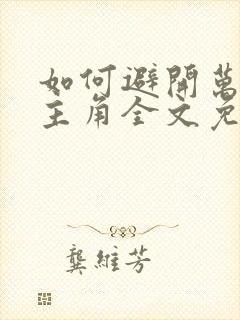 如何避開萬
主角全文免
龔維芳